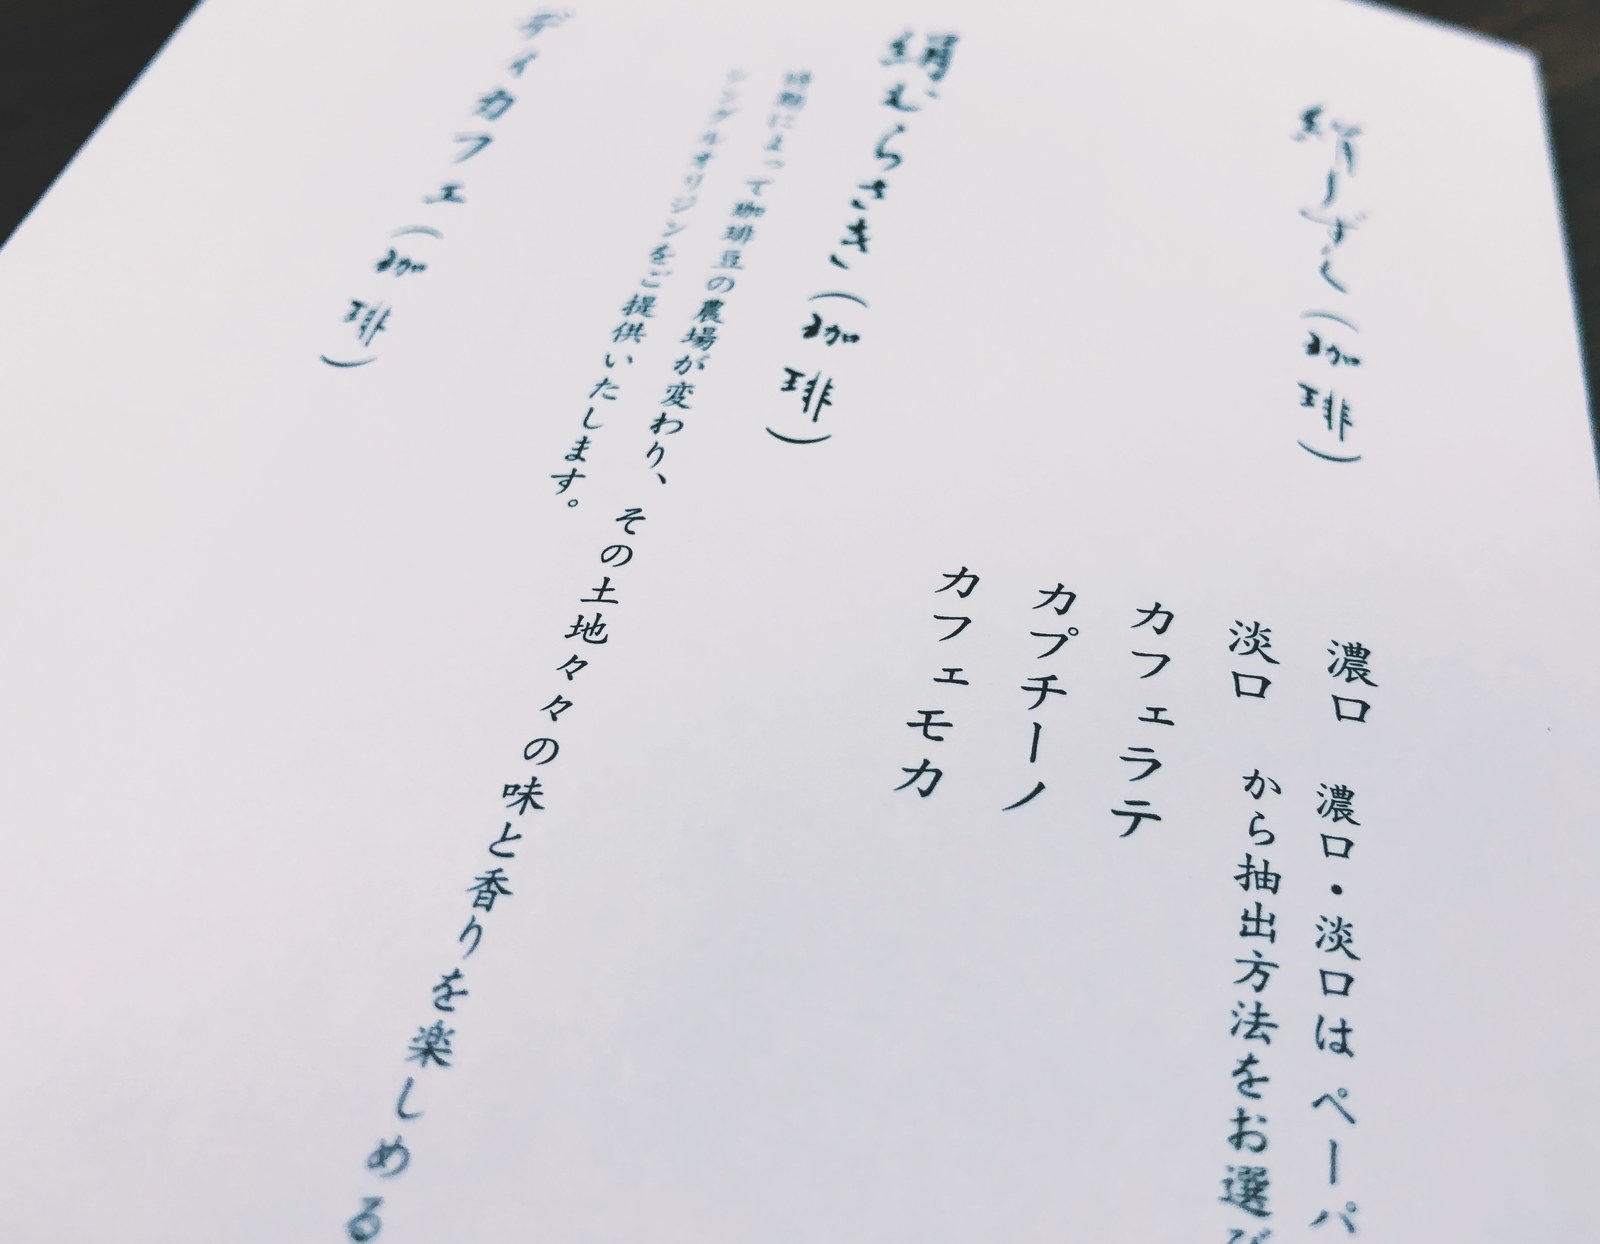 絹しずく(珈琲)
濃口 濃口・淡口はペーパ
淡口 から抽出方法をお選び
カフェラテ
カプチーノ
カフェモカ
絹むらさき(珈琲)
時期によって珈琲豆の農場が変わり、その土地々々の味と香りを楽しめる
シングルオリジンをご提供いたします。
ディカフェ(珈琲)